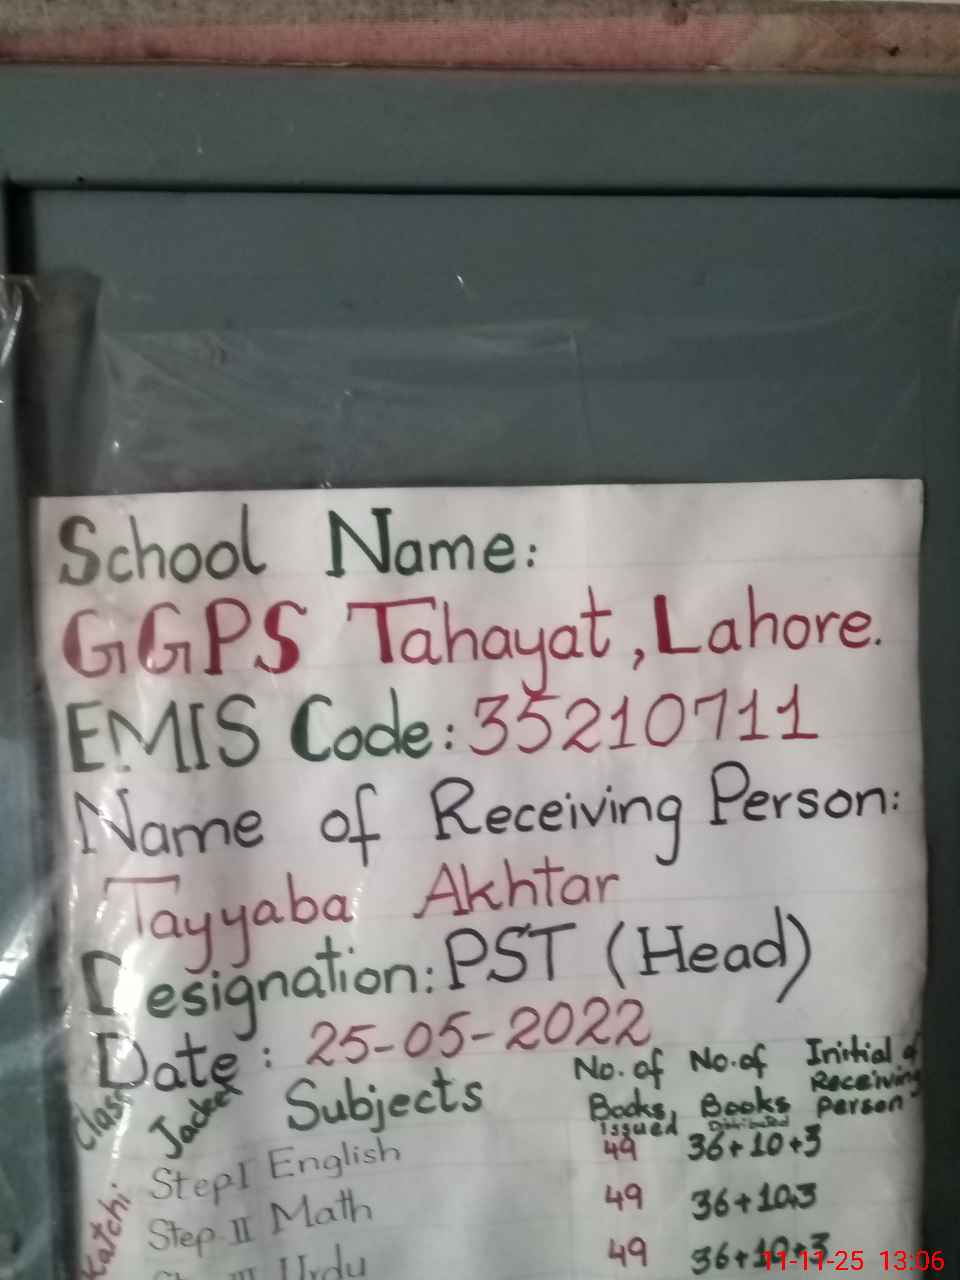 School Name:
GGPS Tahayat, Lahore.
EMIS Code: 35210711
Name of Receiving Person:
Tayyaba Akhtar
Designation: PST (Head)
Date: 25-05-2022
Class Jacket Subjects No. of Books Issued No. of Books Distributed Initial of Receiving Person
Katchi
Step-I English 49 36+10+3
Step-II Math 49 36+10+3
Urdu 49 36+10+3
11-11-25 13:06